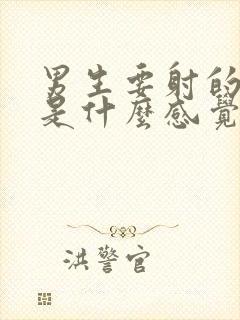 男生要射的
是什麼感覺
洪警官